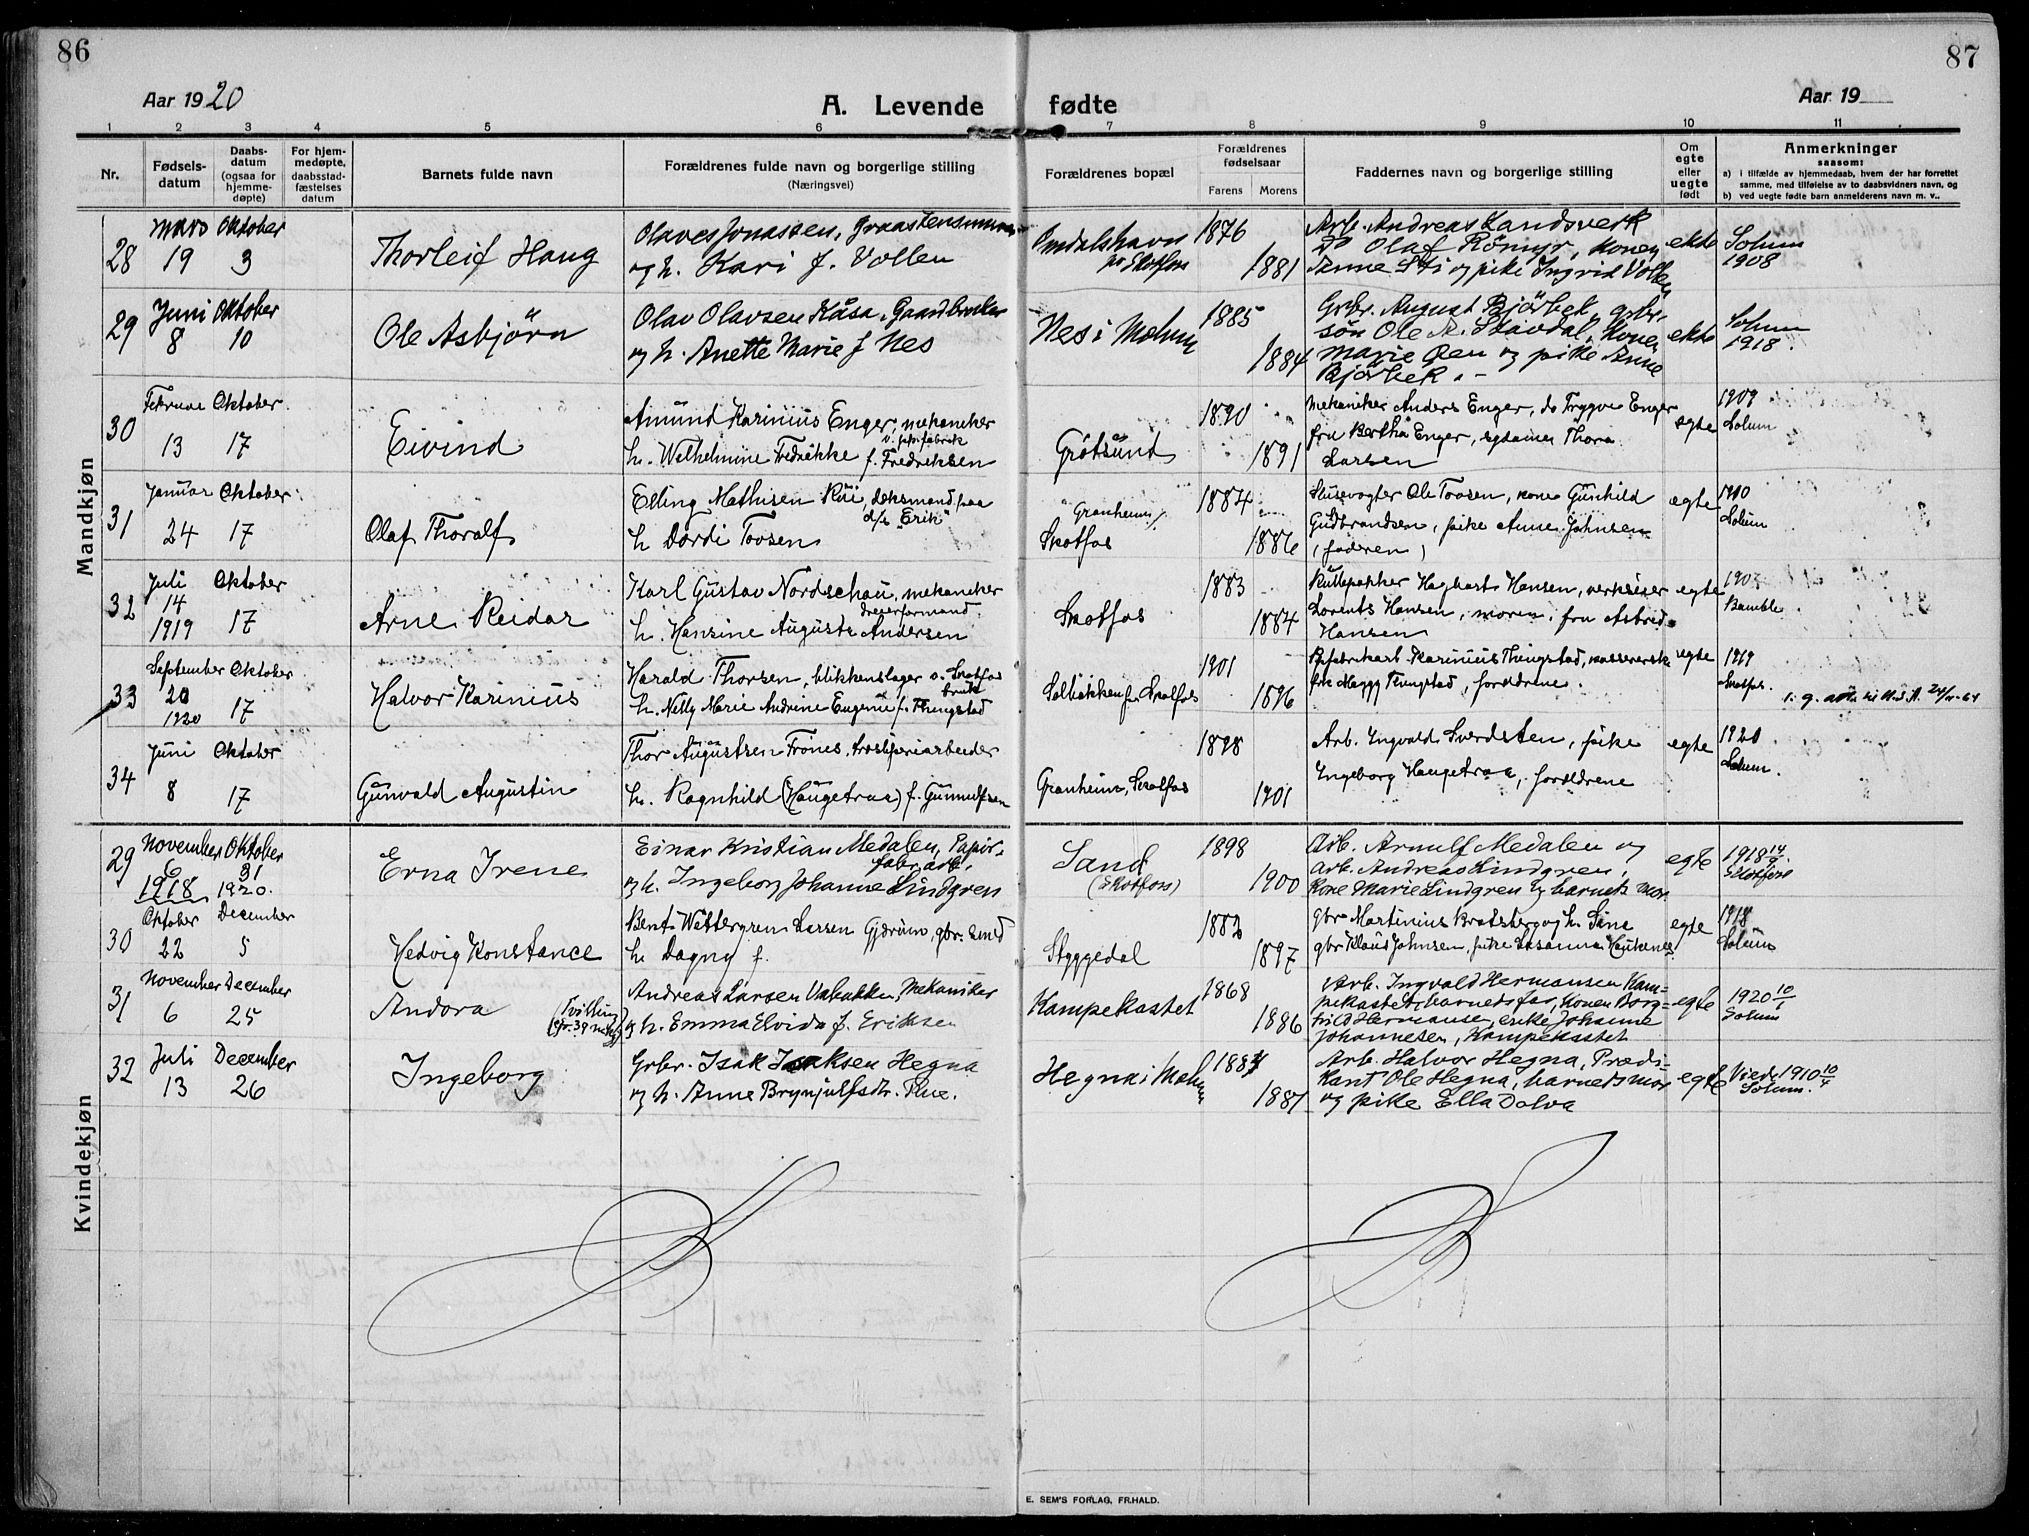 86
87
Aar 1920
A. Levende fødte
Aar 19
1 2 3 4 5 6 7 8 9 10 11
Nr.
Fødsels-
datum
Daabs-
datum
(ogsaa for
hjemme-
døpte)
For hjem-
medøpte,
daabsstad-
fæstelses
datum
Barnets fulde navn
Forældrenes fulde navn og borgerlige stilling
(Næringsvei)
Forældrenes bopæl
Forældrenes
fødselsaar
Farens Morens
Faddernes navn og borgerlige stilling
Om
egte
eller
uegte
født
Anmerkninger
saasom:
a) i tilfælde av hjemmedaab, hvem der har forrettet
samme, med tilføielse av to daabsvidners navn, og
b) ved uegte fødte barn anmelderens navn m. v..
Mandkjøn
28
Mars Oktober
19 3
Thorleif Haug
Olaves Jonassen,
og h. Kari f. Vollen
Omdalshavn
pr Skotfos
1876
1881
Arb. Andreas Landsverk
Do Olaf Konen
Anne Sti og pike Ingrid Vollen
ekte
Solum
1908
29
Juni Oktober
8 10
Ole Asbjörn
Olav Olavsen Kåsa, Gaardbruker
og h. Anette Marie f Nes
Nes i Melum
1885
1884
Grbr. August Bjårbek, grbr.
sön Ole A. Stavdal, Konen
Marie Øen og pike Anne
Bjårbek. -
ekte
Solum
1918.
30
Februar Oktober.
13 17
Eivind
Amund Karinius Enger, mekaniker
v.
h. Wilhelmine Fredrikke f. Fredriksen
Grötsund
1890
1891
Mekaniker Anders Enger, do Trygve Enger
fru Bertha Enger, Thora
Larsen
egte
1909
Solum
31
Januar Oktober
24 17
Olaf Thoralf
Elling Mathisen Rui, deksmand paa
d/s "Erik"
h Dordi Tovsen
Granheim
Skotfos
1884
1886
Slusevogter Ole Tovsen, kone Gunhild
Gudbrandsen, pike Anne Johnsen
(faderen)
egte
1910
Solum
32
Juli Oktober
14
1919 17
Arne Reidar
Karl Gustav Nordschau, mekaniker
dreierformand
h. Hansine Augusta Andersen
Skotfos
1883
1884
Hagbart Hansen,
Lorents Hansen, moren, fru Astrid
Hansen
egte
1907
Bamble
33
September Oktober
20
1920 17
Halvor Karinius
Harald Thorsen, blikkenslager v. Skotfos
bruk
h. Nelly Marie Andrine Eugenie f. Thingstad
Solbakken pr Skotfos
1901
1896
Karinius Thingstad,
frk Maggy Thingstad, forældrene.
egte
1919
Skotfos.
34
Juni Oktober
8 17
Gunvald Augustin
Thor Augustsen Frones, træsliperiarbeider
h. Ragnhild (Haugetraa) f. Gunnulfsen
Granheim, Skotfos
1898
1901
Arb. Ingvald Sverdsten, pike
Ingeborg Haugetraa, forældrene
egte
1920
Solum.
Kvindekjøn
29
November Oktober
6 31
1918 1920.
Erna Irene
Einar Kristian Medalen, Papir-
fabr. arb.
og h. Ingeborg Johanne Lindgren
Sand
(Skotfoss)
1898
1900
Arb. Arnulf Medalen og
Arb. Andreas Lindgren,
Kone Marie Lindgren & barnets mor
egte
1918
Skotfoss
30
Oktober December
22 5
Hedvig Konstance
Bent Wettergren Larsen Gjærum, gbr. smed
h Dagny f.
Styggedal
1882
1897
gbr Martinius Bratsberg og h. Sina
gbr Klaus Johnsen, pike Susanna
egte
1918
Solum
31
November December
6 25
Andora
(Tvilling
Andreas Larsen Vabakken, Mekaniker
og h. Emma Elvida f. Eriksen
Kampekastet
1868
1886
Arb. Ingvald Hermansen Kam-
pekastet, barnets far, Konen Borg-
hild Hermansen, enke Johanne
Johannesen, Kampekastet
egte
1920 10/1
Solum
32
Juli December
13 26
Ingeborg
Grbr. Isak Isaksen Hegna
og h. Anne Brynjulfsdtr. Tlue.
Hegna i Melum
1887
1887
Arb. Halvor Hegna, Prædi-
kant Ole Hegna, barnets mor
og pike Ella Dolva
egte
Viede 1910 10/4
Solum.
E. SEM'S FORLAG, FR.HALD.